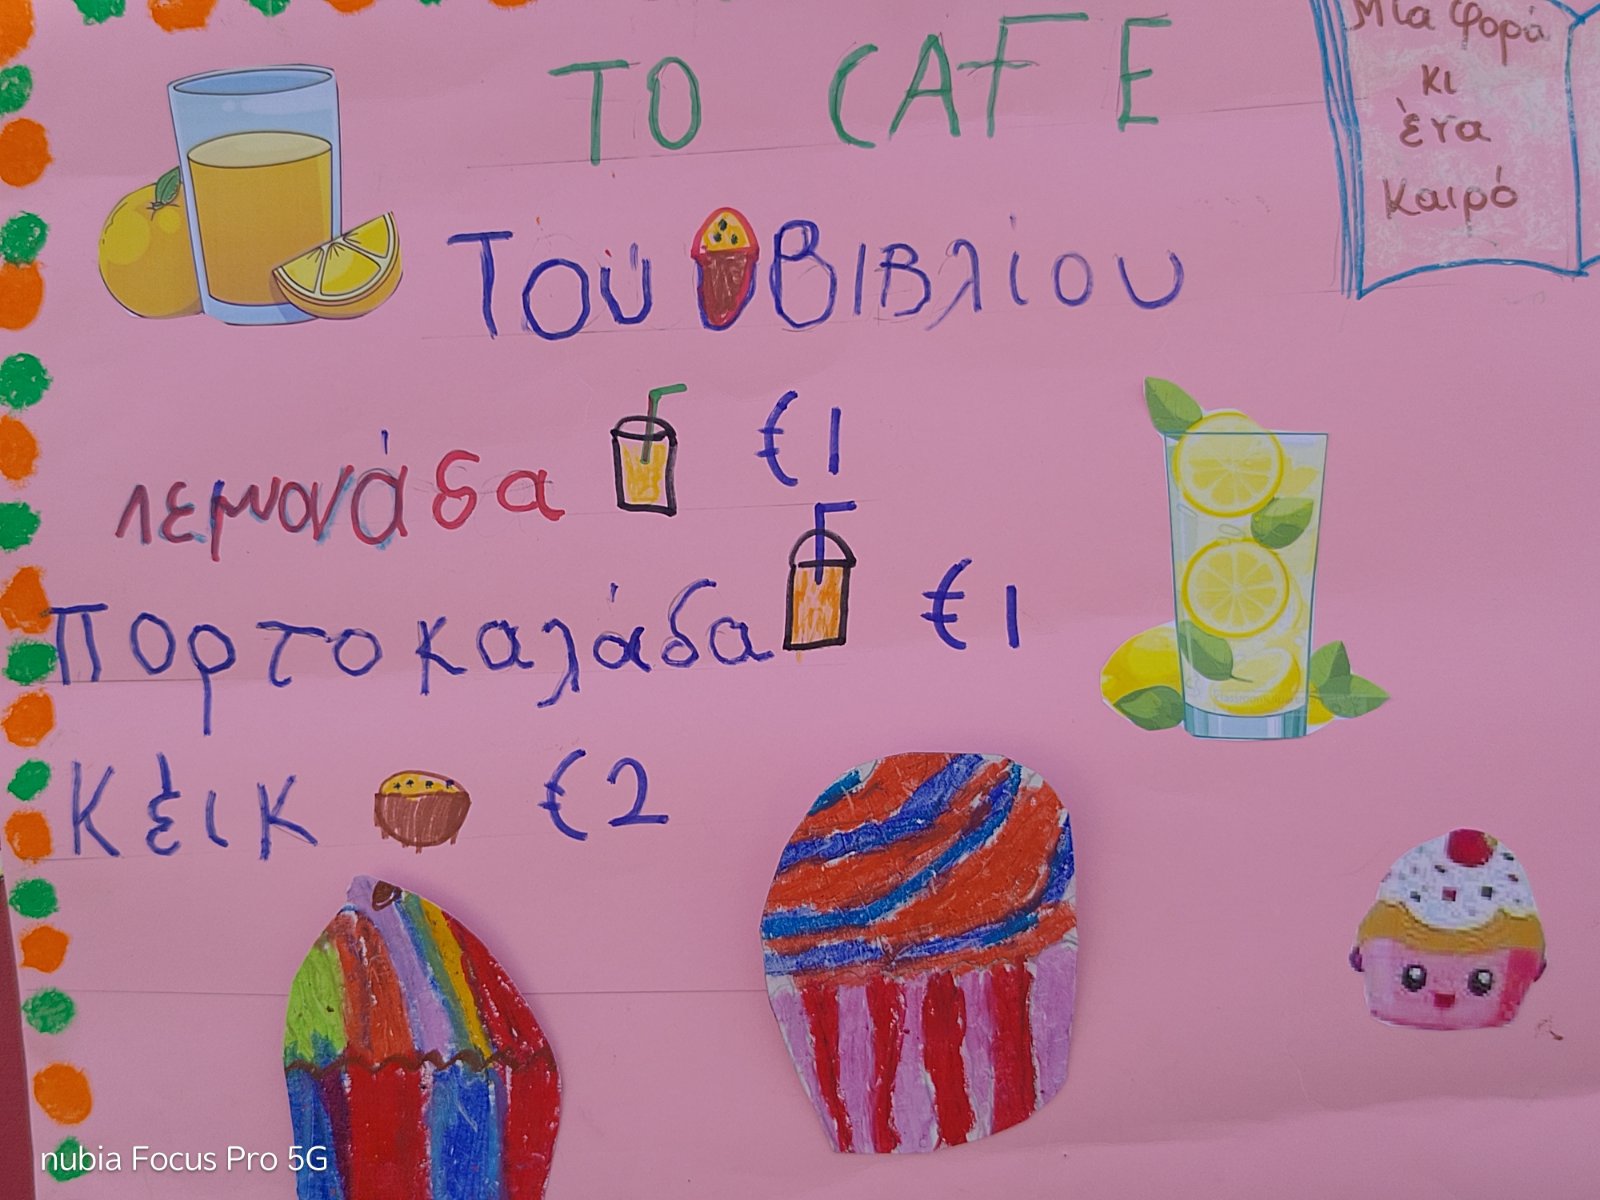 ΤΟ CAFE
Τού βιβλίου
λεμονάδα €1
Πορτοκαλάδα €1
Κέικ €2
Μια φορά
κι
ένα
καιρό
nubia Focus Pro 5G